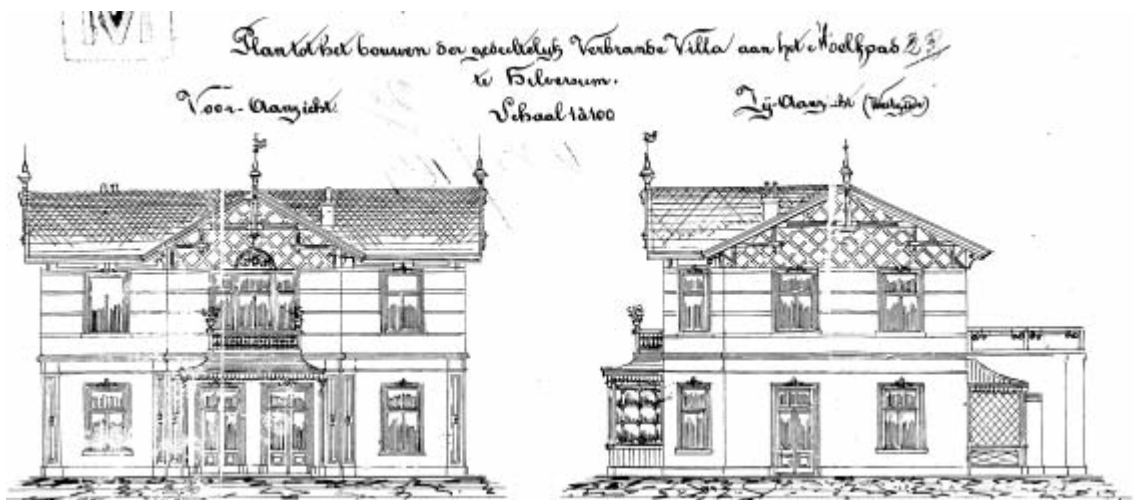 Plan tot het bouwen der gedeeltelijk Verbrande Villa aan het
te Hilversum.
Voor-Aanzicht.
Schaal 1à100
Zij-Aanzicht